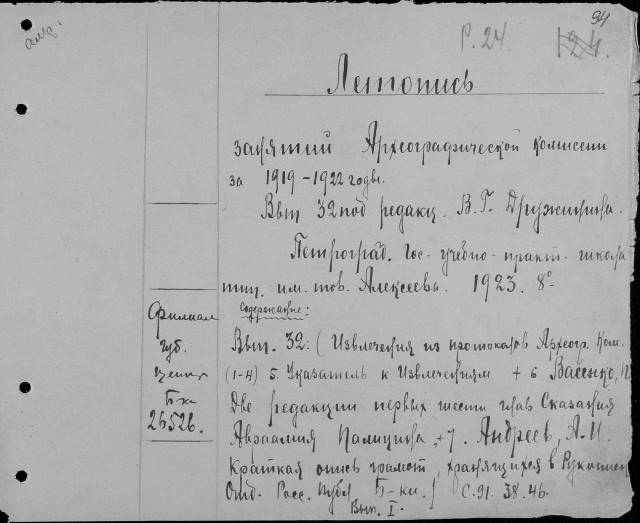 94
Р. 24.
124.
Летопись
занятий Археографической комиссии
за 1919-1922 годы.
Вып 32 под редакц. В. Г. Дружинина.
Петроград. Гос- учебно- практ. школа
тип. им. тов. Алексеева. 1923. 8°
Содержание:
Вып. 32: (Извлечения из протоколов Археогр. Ком.
(1-4) 5. Указатель к Извлечениям + 6 Васенко,
Две редакции первых шести глав Сказания
Авраамия Палицина, + 7. Андреев, А. И.
Краткая опись грамот, хранящихся в Рукописн
Отд. Росс. Публ. Б-ки.] С. 91. 38. 46.
Вып. I.
Филиал
Губ.
центр
Б-ки
26526.